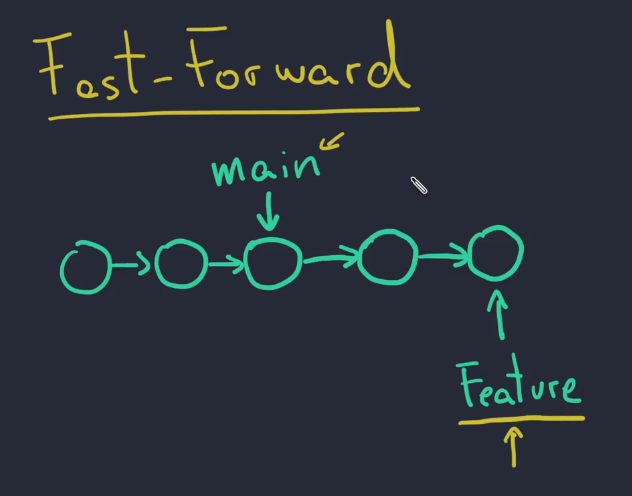 Fast-Forward
main
Feature